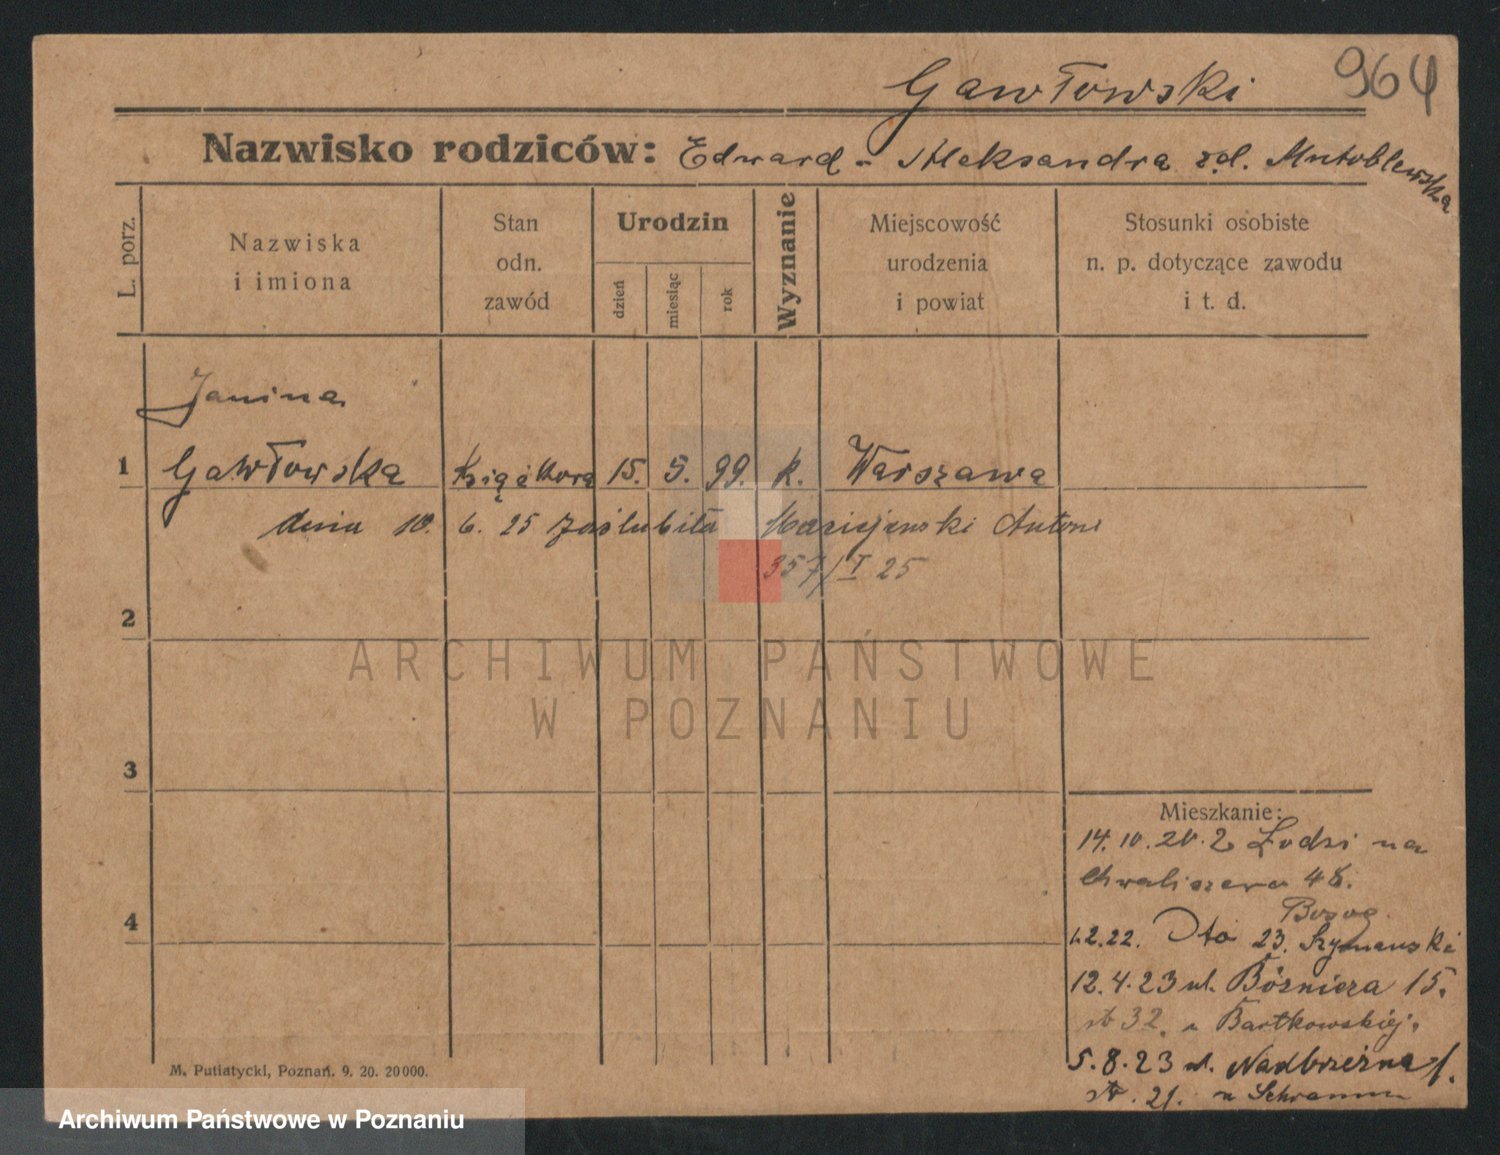 964
Gawłowski
Nazwisko rodziców: Edward - Aleksandra zd.
L. porz.
Nazwiska
i imiona
Stan
odn.
zawód
Urodzin
dzień
miesiąc
rok
Wyznanie
Miejscowość
urodzenia
i powiat
Stosunki osobiste
n. p. dotyczące zawodu
i t. d.
Janina
1 Gawłowska 15. 5. 99. k. Warszawa
dnia 10. 6. 25 zaślubiła Antoni
357/I 25
2
ARCHIWUM PAŃSTWOWE
W POZNANIU
3
Mieszkanie:
14. 10. 20. z Łodzi na
Chwaliszewo 48.
4
1.2.22. Dto 23. Szymanski
12.4.23 ul. Bóżnicza 15.
32. u Bartkowskiej.
5.8.23 ul. Nadbrzeżna 1.
21. u Schramm
M. Putiatycki, Poznań. 9. 20. 20000.
Archiwum Państwowe w Poznaniu